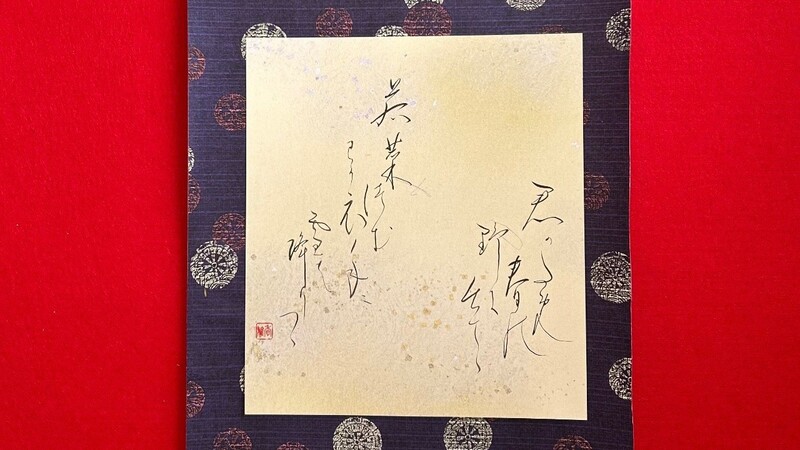 君かため
春の
野に出て
若菜つむ
わか衣手に
雪は
降りつゝ